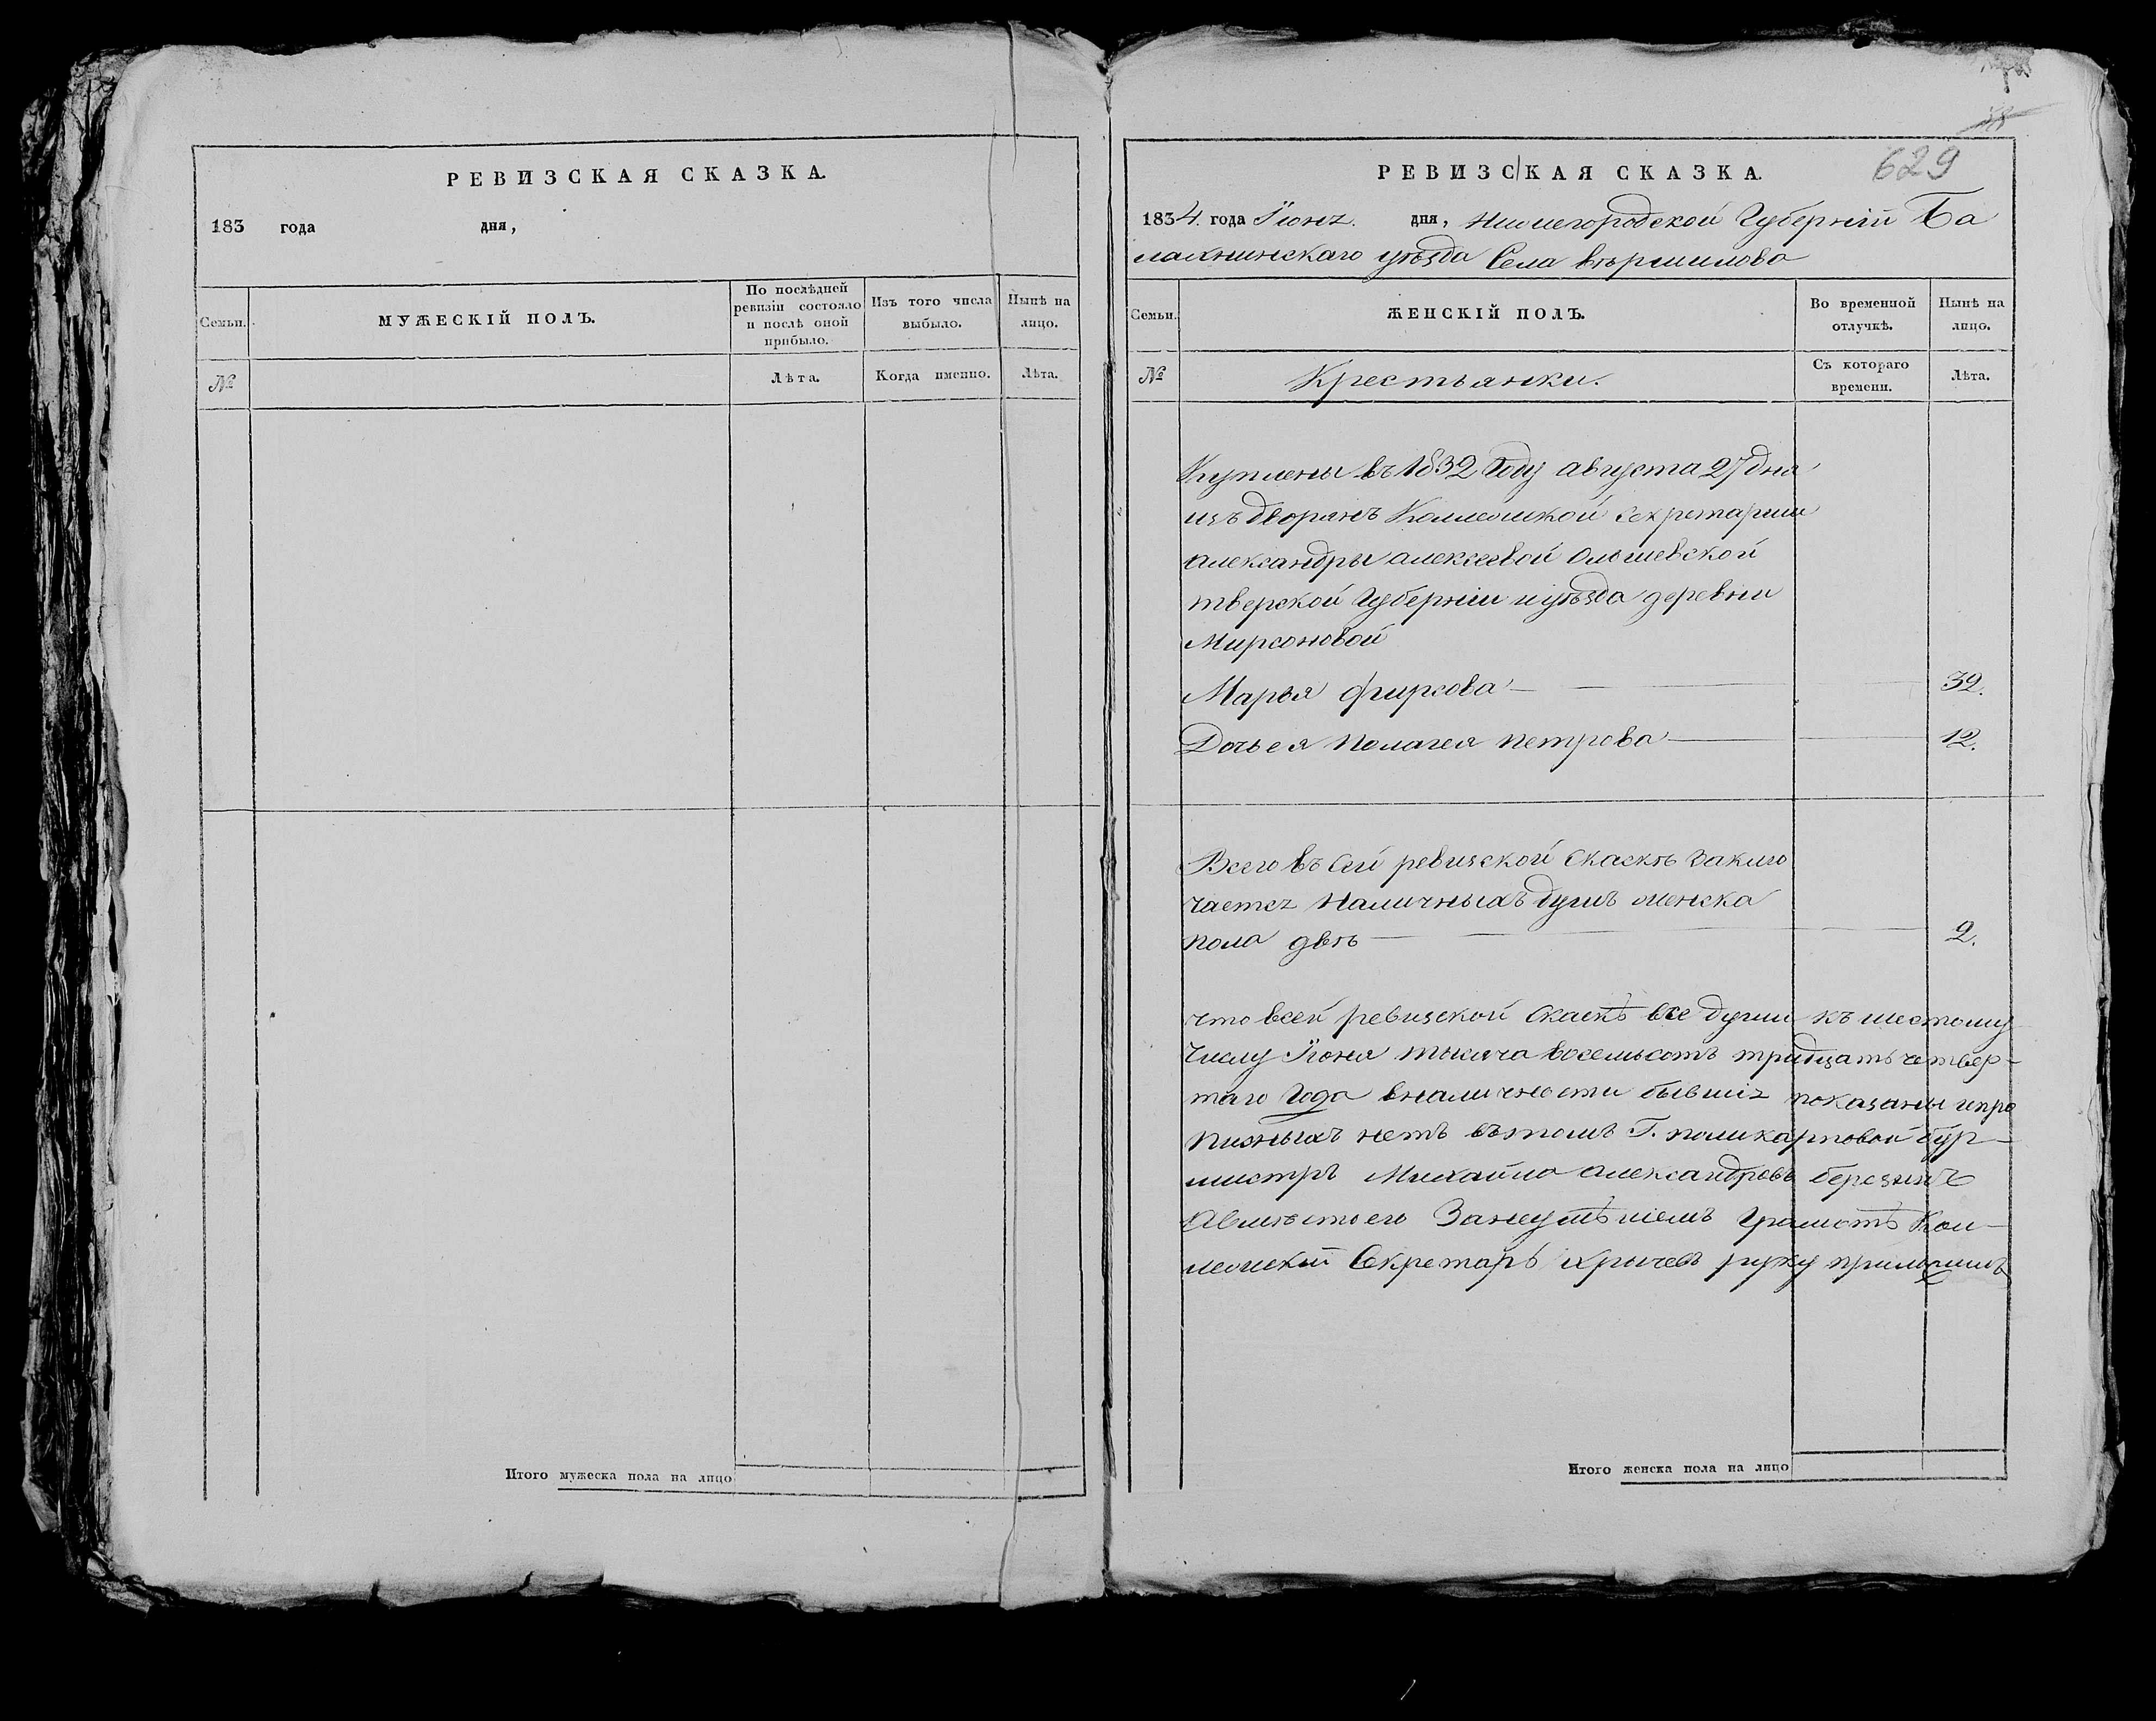 РЕВИЗСКАЯ СКАЗКА.
183 года дня,
Семьи.
МУЖЕСКІЙ ПОЛЪ.
По послѣдней ревизіи состояло и послѣ оной прибыло.
Изъ того числа выбыло.
Нынѣ на лицо.
№
Лѣта.
Когда именно.
Лѣта.
Итого мужеска пола на лицо
629
РЕВИЗСКАЯ СКАЗКА.
1834. года Іюнz. дня, Нижегородской Губерніи Ба
лахнинскаго уѣзда Села вѣршилова
Семьи.
ЖЕНСКІЙ ПОЛЪ.
Во временной отлучкѣ.
Нынѣ на лицо.
№
Крестьянки.
Съ котораго времени.
Лѣта.
Куплены въ 1832 Году августа 27 дня
изъ дворянъ Коллежской секретарши
александры алексеевой Ольшевской
тверской Губерніи иуѣзда деревни
Мирсоновой
Марья фирсова 32.
Дочь ея Пелагея петрова 12.
Всего въ сей ревизской Сказкѣ заклю
чаетсz наличныхъ душъ женска
пола двѣ 2.
что всей ревизской скаскѣ все души къ шестому
числу Іюня тысяча восемьсотъ тридцать четвер-
таго Года вналичности бывшіz показаны ипро
писныхъ нетъ въ томъ Г. поликарповой бур-
мистръ Михайло александровъ березинъ
Авместо его Занеумѣніемъ Грамотѣ Кол-
лежскій Секретарь Крычевъ руку приложилъ
Итого женска пола на лицо